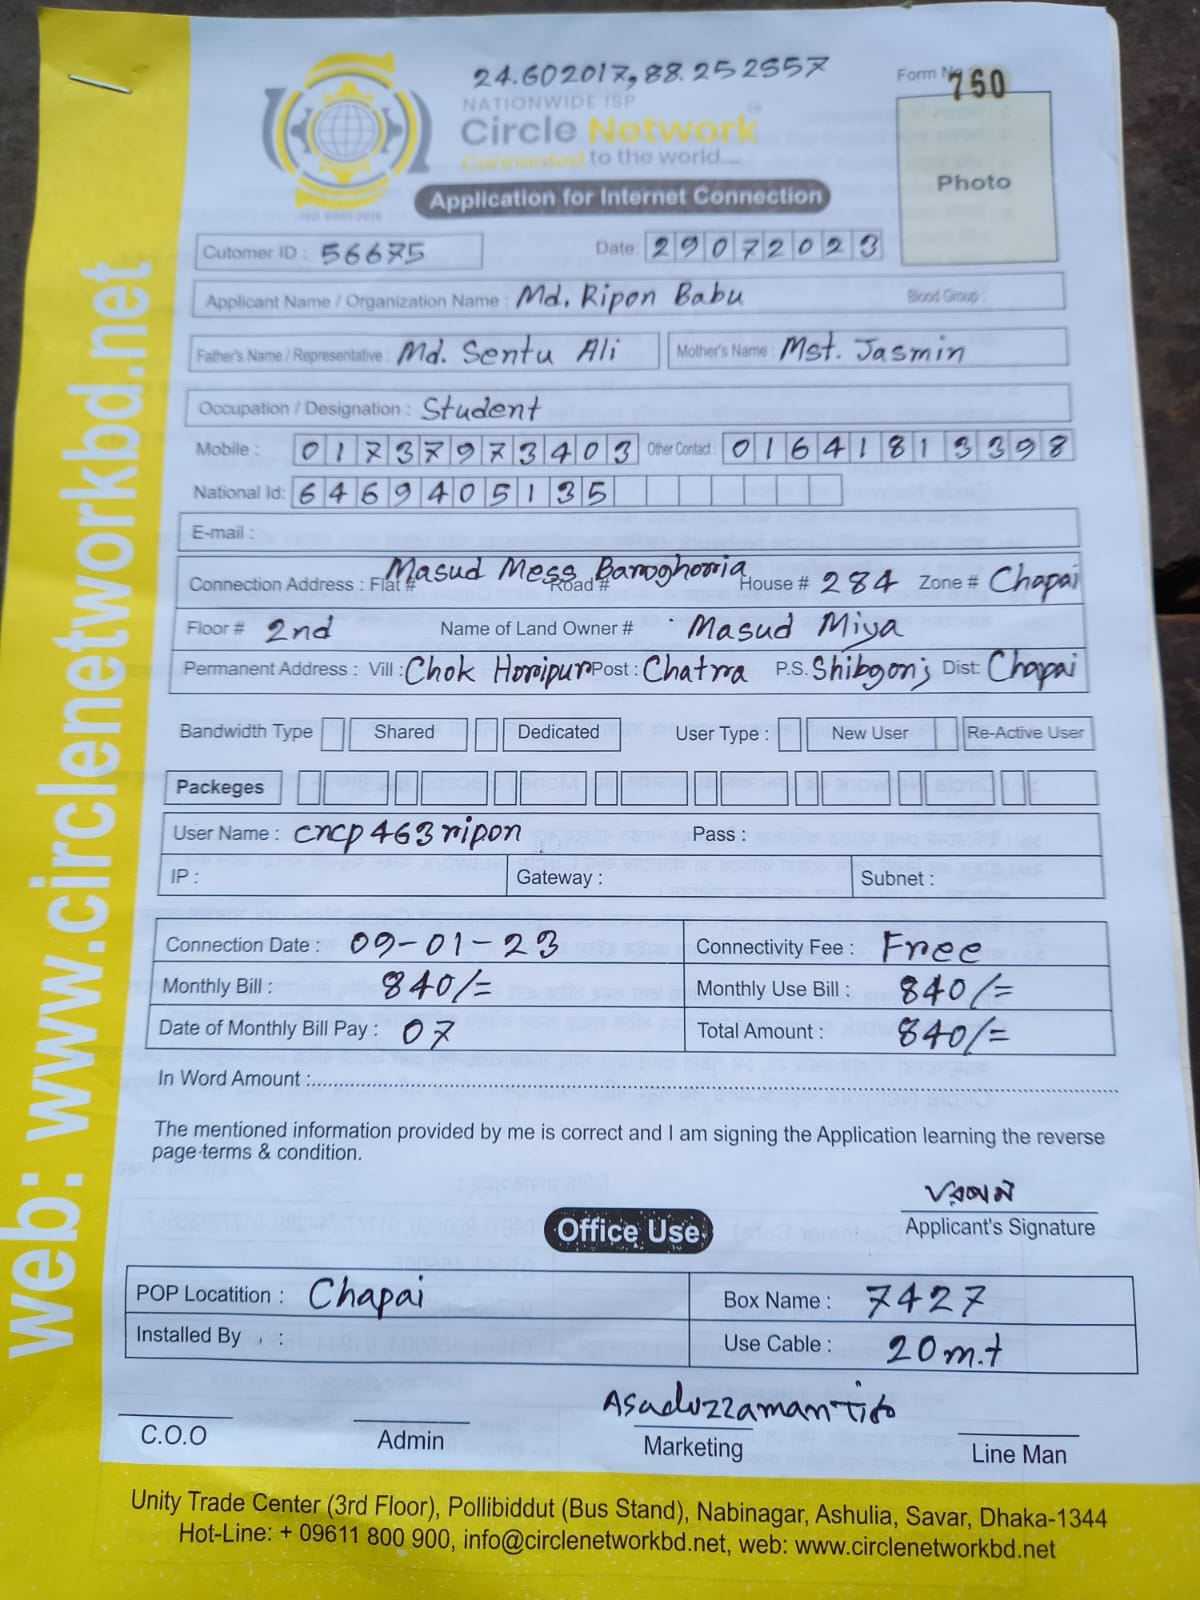 24.602017, 88.252557
Form No 760
NATIONWIDE ISP
Circle Network
Connected to the world...
ISO 9001:2015
Application for Internet Connection
Photo
Cutomer ID : 56675 Date: 29072023
Applicant Name / Organization Name : Md. Ripon Babu Blood Group :
Father's Name / Representative : Md. Sentu Ali Mother's Name : Mst. Jasmin
Occupation / Designation : Student
Mobile : 01737973403 Other Contact : 01641813398
National Id: 6469405135
E-mail :
Connection Address : Flat # Masud Mess Baroghoria Road # House # 284 Zone # Chapai
Floor # 2nd Name of Land Owner # Masud Miya
Permanent Address : Vill : Chok Horipur Post : Chatra P.S. Shibgonj Dist: Chapai
Bandwidth Type Shared Dedicated User Type : New User Re-Active User
Packeges
User Name : cncp463ripon Pass :
IP : Gateway : Subnet :
Connection Date : 09-01-23 Connectivity Fee : Free
Monthly Bill : 840/= Monthly Use Bill : 840/=
Date of Monthly Bill Pay : 07 Total Amount : 840/=
In Word Amount :
The mentioned information provided by me is correct and I am signing the Application learning the reverse
page terms & condition.
Applicant's Signature
Office Use
POP Locatition : Chapai Box Name : 7427
Installed By : Use Cable : 20m.t
Asaduzzaman Tito
C.O.O Admin Marketing Line Man
Unity Trade Center (3rd Floor), Pollibiddut (Bus Stand), Nabinagar, Ashulia, Savar, Dhaka-1344
Hot-Line: + 09611 800 900, info@circlenetworkbd.net, web: www.circlenetworkbd.net
web: www.circlenetworkbd.net